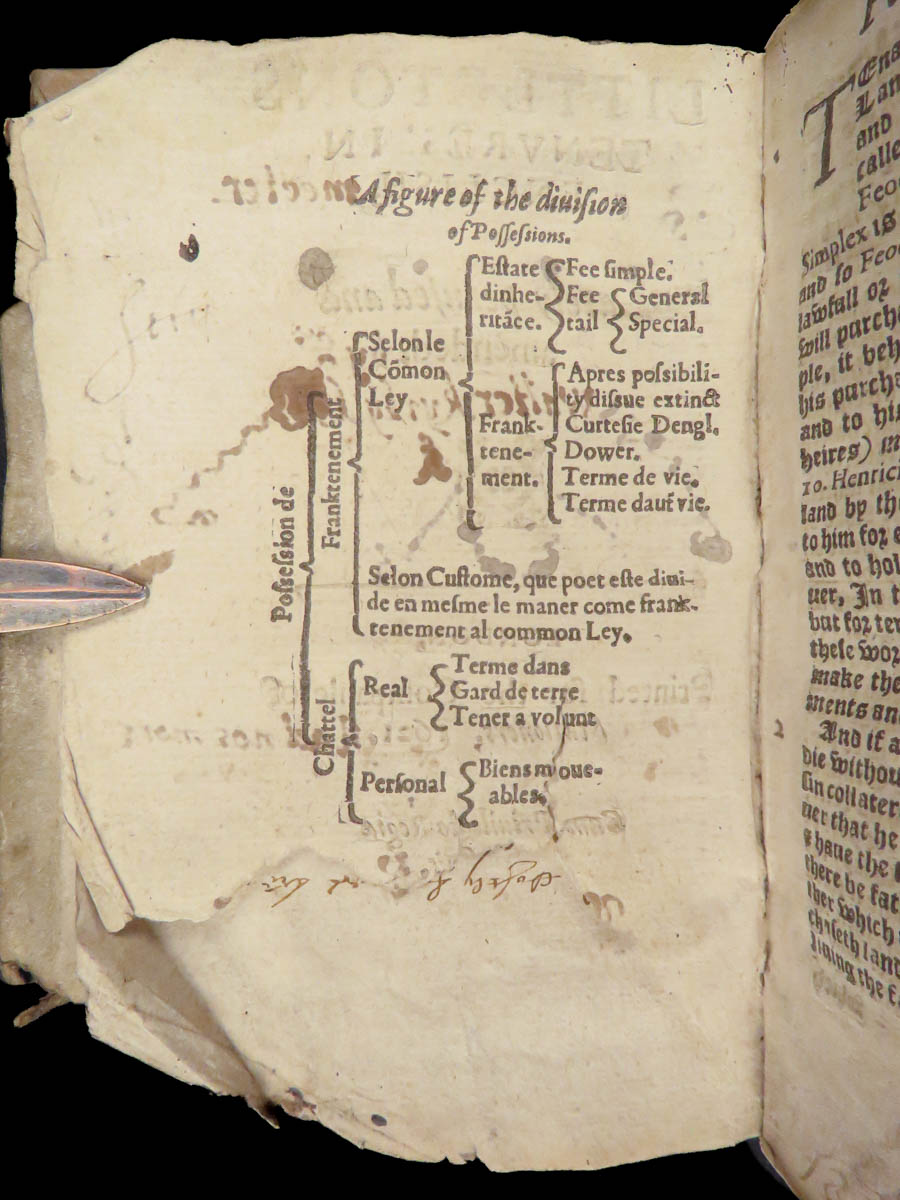 A figure of the diuiſion
of Poſſeſsions.
Poſſeſsion de
Franktenement
Selon le
Cõmon
Ley
Eſtate
dinhe-
ritãce.
Fee ſimple.
Fee
tail
General
Special.
Frank-
tene-
ment.
Apres poſsibili-
ty diſſue extinct
Curteſie Dengl.
Dower.
Terme de vie.
Terme daut vie.
Selon Cuſtome, que poet eſte diui-
de en meſme le maner come frank-
tenement al common Ley.
Chattel
Real
Terme dans
Gard de terre
Tener a volunt
Perſonal
Biens moue-
ables.
Lan
and
Feo
Simplex is
and ſo Feo
lawfull oz
will purch
ple, it beh
his purcha
and to hi
heires) m
10. Henrici
land by th
to him foz e
and to hol
uer, In t
but foz ter
theſe woz
make the
ments an
2
And if a
die withou
ſin collater
uer that he
haue the
there be fat
ther which
chaſeth lan